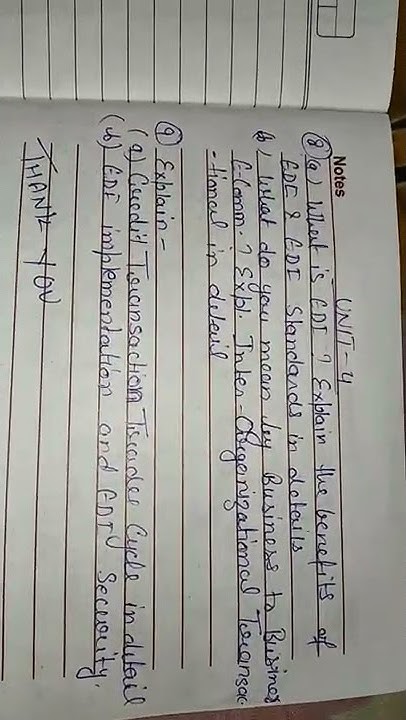 Notes
UNIT-4
⑧ (a) What is EDI ? Explain the benefits of
EDI & EDI Standards in details
b) What do you mean by Business to Busines
E-Comm. ? Expl. Inter-Organizational Transac
-tional in detail
⑨ Explain -
(a) Credit Transaction Trade Cycle in detail
(b) EDI implementation and EDI Security.
THANK YOU